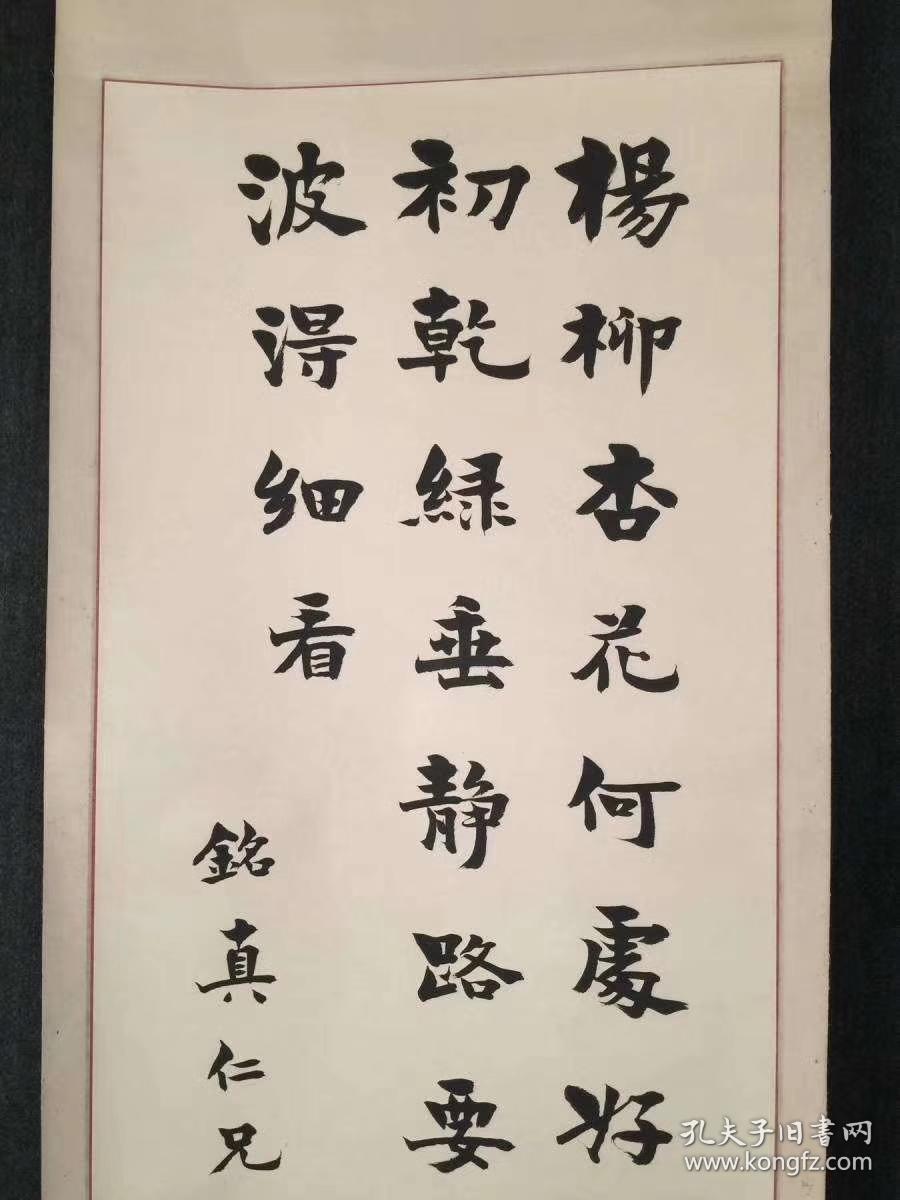 楊柳杏花何處好
初乾綠垂静路要
波淂細看
銘真仁兄
孔夫子旧書网
www.kongfz.com